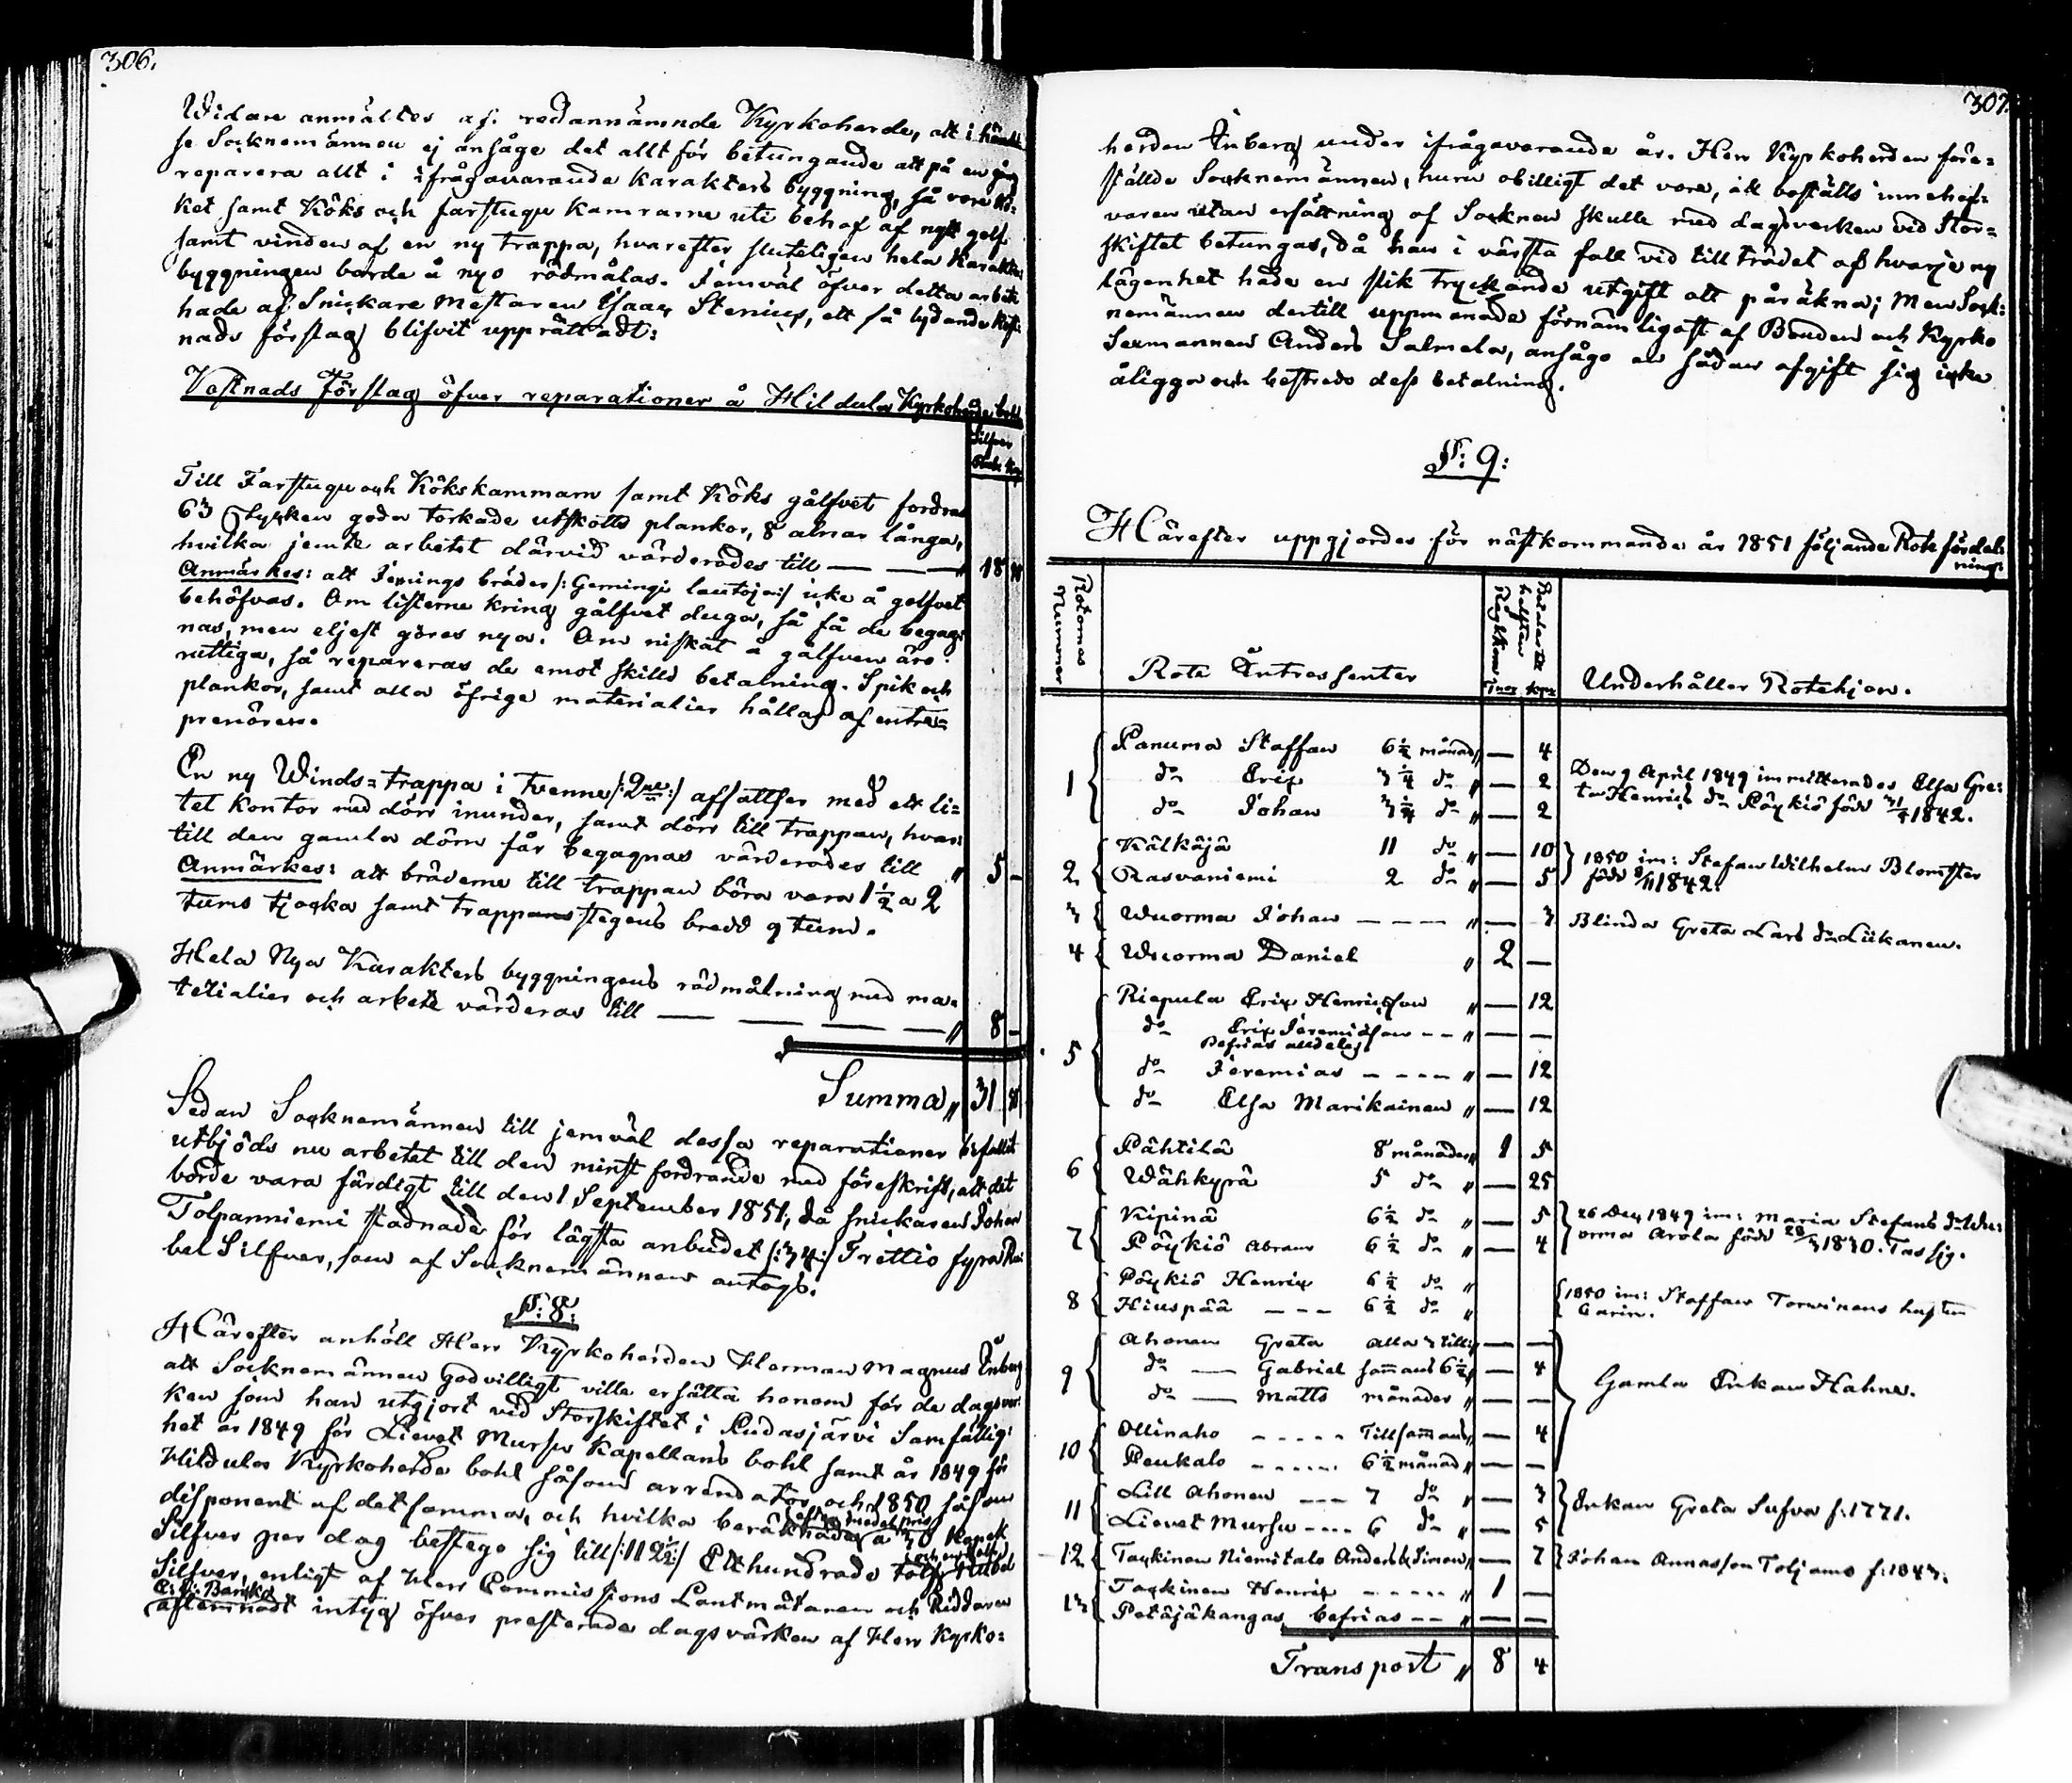 306.
Widare anmältes af redannämnde Kyrkoherde, att i händel
se Socknemännen ej ansåge det allt för betungande att på en gång
reparera allt i ifrågavarande karakters byggning, så vore Kö=
ket samt Köks och farstugu kamrarne uti behof af nytt golf
samt vinden af en ny trappa, hvarefter sluteligen hela Karakters
byggningen borde å nyo rödmålas. Jemväl öfver detta arbete
hade af Snickare Mästaren Isaac Stenius, ett så lydande Kost=
nads förslag blifvit upprättadt:
Kostnads Förslag öfver reparationer å Hildula Kyrkoherde bohl
Silfver
Rub. Kop
Till Farstugu och Kökskammarn samt Köks gålfvet fordras
63 stycken goda torkade utskotts plankor, 8 alnar långa,
hvilka jemte arbetet därvid värderades till — — — „ 18
Anmärkes: att Jemings bräder /: Gemingi lautoja:/ icke å golfvet
behöfvas. Om listerne kring gålfvet duga, så få de begag=
nas, men eljest göres nya. Om niskat å gålfven äro
ruttiga, så repareras de emot skilld betalning. Spik och
plankor, samt alla öfrige materialier hållas af entre=
prenören.
En ny Winds=trappa i tvenne /:2ne:/ afsattser med ett li=
tet kontor med dörr inunder, samt dörr till trappan, hvar=
till den gamla dörrn får begagnas värderades till „ 5 —
Anmärkes: att bräderne till trappan böra vara 1½ a 2
tums tjocka samt trappans stegens bredd 9 tum.
Hela Nya Karakters byggningens rödmålning med ma=
terialier och arbete värderas till — — — — „ 8 —
Summa „ 31
Sedan Socknemännen till jemväl dessa reparationer bifallit
utbjöds nu arbetet till den minst fordrande med föreskrift, att det
borde vara färdigt till den 1 September 1851, då snickaren Johan
Tolpanniemi stadnade för lägsta anbudet /:34:/ Trettio fyra Ru=
bel Silfver, som af Socknemännen antogs.
§: 8:
Härefter anhöll Herr Kyrkoherden Herman Magnus Enberg
att Socknemännen godvilligt ville ersätta honom för de dagsver=
ken som han utgjort vid Storskiftet i Pudasjärvi Samfällig=
het år 1849 för Lievet Mursu Kapellans bohl samt år 1849 för
Hildula Kyrkoherde bohl såsom arrendator och 1850 såsom
disponent af det samma, och hvilka beräknade efter medelpris a 30 Kopek
Silfver per dag bestego sig till /:112½:/ Etthundrade tolf och en half Rubel
Silfver, enligt af Herr Commissions Lantmätaren och Riddaren
C: J: Banska
aflemnadt intyg öfver presterade dagsvärken af Herr Kyrko=
307.
herden Enberg under ifrågavarande år. Herr Kyrkoherden före=
ställde Socknemännen, huru obilligt det vore, att boställs innehaf=
varen utan ersättning af Socknen skulle med dagsverken vid Stor=
skiftet betungas, då han i värsta fall vid tillträdet af hvarje ny
lägenhet hade en slik tryckande utgift att påräkna; Men Sock=
nemännen dertill uppmanade förnämligast af Bonden och Kyrko
Sexmannen Anders Salmela, ansågo en sådan afgift sig icke
åligga och bestredo dess betalning.
§: 9:
Härefter uppgjordes för nästkommande år 1851 följande Rote fördel=
ning:
Rotornas Nummer
Rote Intressenter
Kop:
Underhåller Rotehjon.
1 Panuma Staffan 6½ månad „ — 4
do Erik 3¼ do „ — 2 Den 9 April 1849 inmitterades Elsa Gre=
do Johan 3¼ do „ — 2 ta Henriks dr Pöykiö född 31/4 1842.
2 Kälkäjä 11 do „ — 10 1850 im: Stefan Wilhelm Blomster
Rasvaniemi 2 do „ — 5 född 8/11 1842.
3 Wuorma Johan — — — „ — 3 Blinda Greta Lars dr Liikanen.
4 Wuorma Daniel „ 2 —
5 Riepula Erik Henricsson „ — 12
do Erik Jeremiæson – – „ — —
Befrias alldeles
do Jeremias – – – – „ — 12
do Elsa Marikainen „ — 12
6 Pähtilä 8 månader „ 1 5
Wähkyrä 5 do „ — 25
7 Kipinä 6½ do „ — 5 26 Dec 1849 im: Maria Stefans dr Wu=
Pöykiö Abram 6½ do „ — 4 orma Arola född 28/3 1830.
8 Pöykiö Henrik 6½ do „ 1850 im: Staffan Torvinens hustru
Hiuspää – – – 6½ do „ Carin.
9 Ahonen Greta Alla 3 tills „ — —
do — Gabriel samans 6½ „ — 4 Gamla Enkan Hahne.
do — Matts månader „ — —
10 Ollinaho – – – – – Tillsamans „ — 4
Peukalo – – – – – 6½ månad „ — —
11 Lill Ahonen – – – 7 do „ — 3 Enkan Greta Sufva f: 1771.
Lievet Mursu – – – – 6 do „ — 5
12 Tackinen Niemitalo Anders & Simon „ — 7 Johan Annasson Toljamo f: 1843.
13 Tackinen Henrik – – – – – „ 1 —
Petäjäkangas befrias – – „ — —
Transport „ 8 4